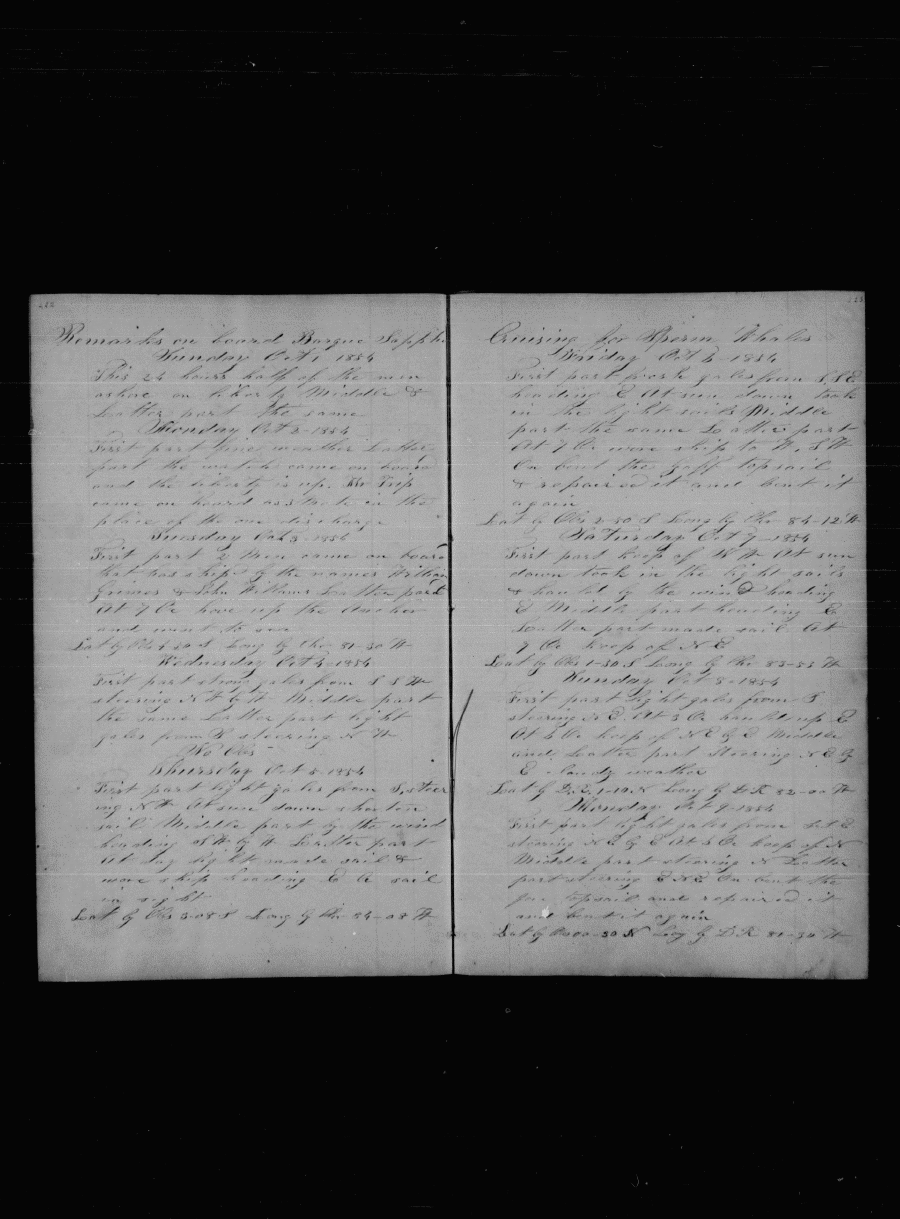 Remarks on board Barque Sappho
Sunday Oct 1 1854
This 24 hours half of the men
ashore on liberty Middle &
Latter part the same
Monday Oct 2-1854
First part fine weather Latter
part the watch came on board
and the liberty is up. Mr Trip
came on board as
place of the one discharge
Tuesday Oct 3-1854
First part 2 Men came on board
that was ship by the names William
Grimes & John Williams Latter part
At 7 Oc hove up the Anchor
and went to sea
Lat by Obs 4-30 S Long by Chr 81-30 W
Wednesday Oct 4-1854
First part strong gales from S S W
steering N W by W Middle part
the same Latter part light
gales from S steering N W
No Obs
Thursday Oct 5-1854
First part light gales from S steer
ing N W At sun down shorten
sail Middle part by the wind
heading S W by W Latter part
At day light made sail &
wore ship heading E A sail
in sight
Lat by Obs 3-08 S Long by Chr 84-08 W
Cruising for Sperm Whales
Friday Oct 6-1854
First part fresh gales from S S E
heading E At sun down took
in the light sails Middle
part the same Latter part
At 7 Oc wore ship to W. S W
Un bent the gaff topsail
& repaired it and bent it
again
Lat by Obs 2-30 S Long by Chr 84-12 W
Saturday Oct 7-1854
First part keep of W At sun
down took in the light sails
& hauld by the wind heading
E Middle part heading E
Latter part made sail At
7 Oc keep of N E
Lat by Obs 1-30 S Long by Chr 83-55 W
Sunday Oct 8-1854
First part light gales from S
steering N E. At 3 Oc hauld up E
At 5 Oc keep of N E by E Middle
and Latter part Steering N E by
E cloudy weather
Lat by D.R. 1-10 N Long by D R 82-00 W
Monday Oct 9-1854
First part light gales from
steering N E by E At 5 Oc keep of N
Middle part steering N Latter
part steering E N E Un bent the
for topsail and repaired it
and bent it again
Lat by Obs 00-30 N Long by D R 81-34 W